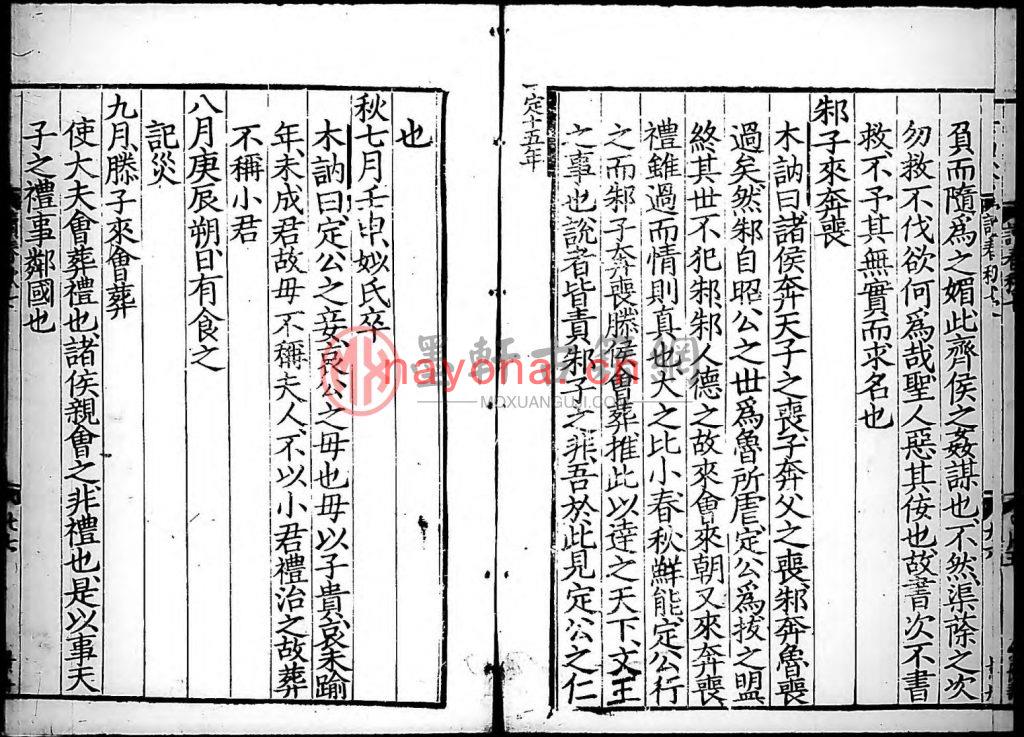 負而隨爲之媚此齊侯之姦謀也不然渠蒢之次
勿救不伐欲何爲哉聖人惡其佞也故書次不書
救不予其無實而求名也
邾子來奔喪
木訥曰諸侯奔天子之喪子奔父之喪邾奔魯喪
過矣然邾自昭公之世爲魯所虐定公爲拔之盟
終其世不犯邾邾人德之故來會來朝又來奔喪
禮雖過而情則真也大之比小春秋鮮能定公行
之而邾子奔喪滕侯會葬推此以達之天下文王
之事也說者皆責邾子之非吾於此見定公之仁
定十五年
也
秋七月壬申姒氏卒
木訥曰定公之妾哀公之母也母以子貴哀未踰
年未成君故母不稱夫人不以小君禮治之故葬
不稱小君
八月庚辰朔日有食之
記災
九月滕子來會葬
使大夫會葬禮也諸侯親會之非禮也是以事天
子之禮事鄰國也
墨軒古籍網
nayona.cn
MOXUANGUJI.COM